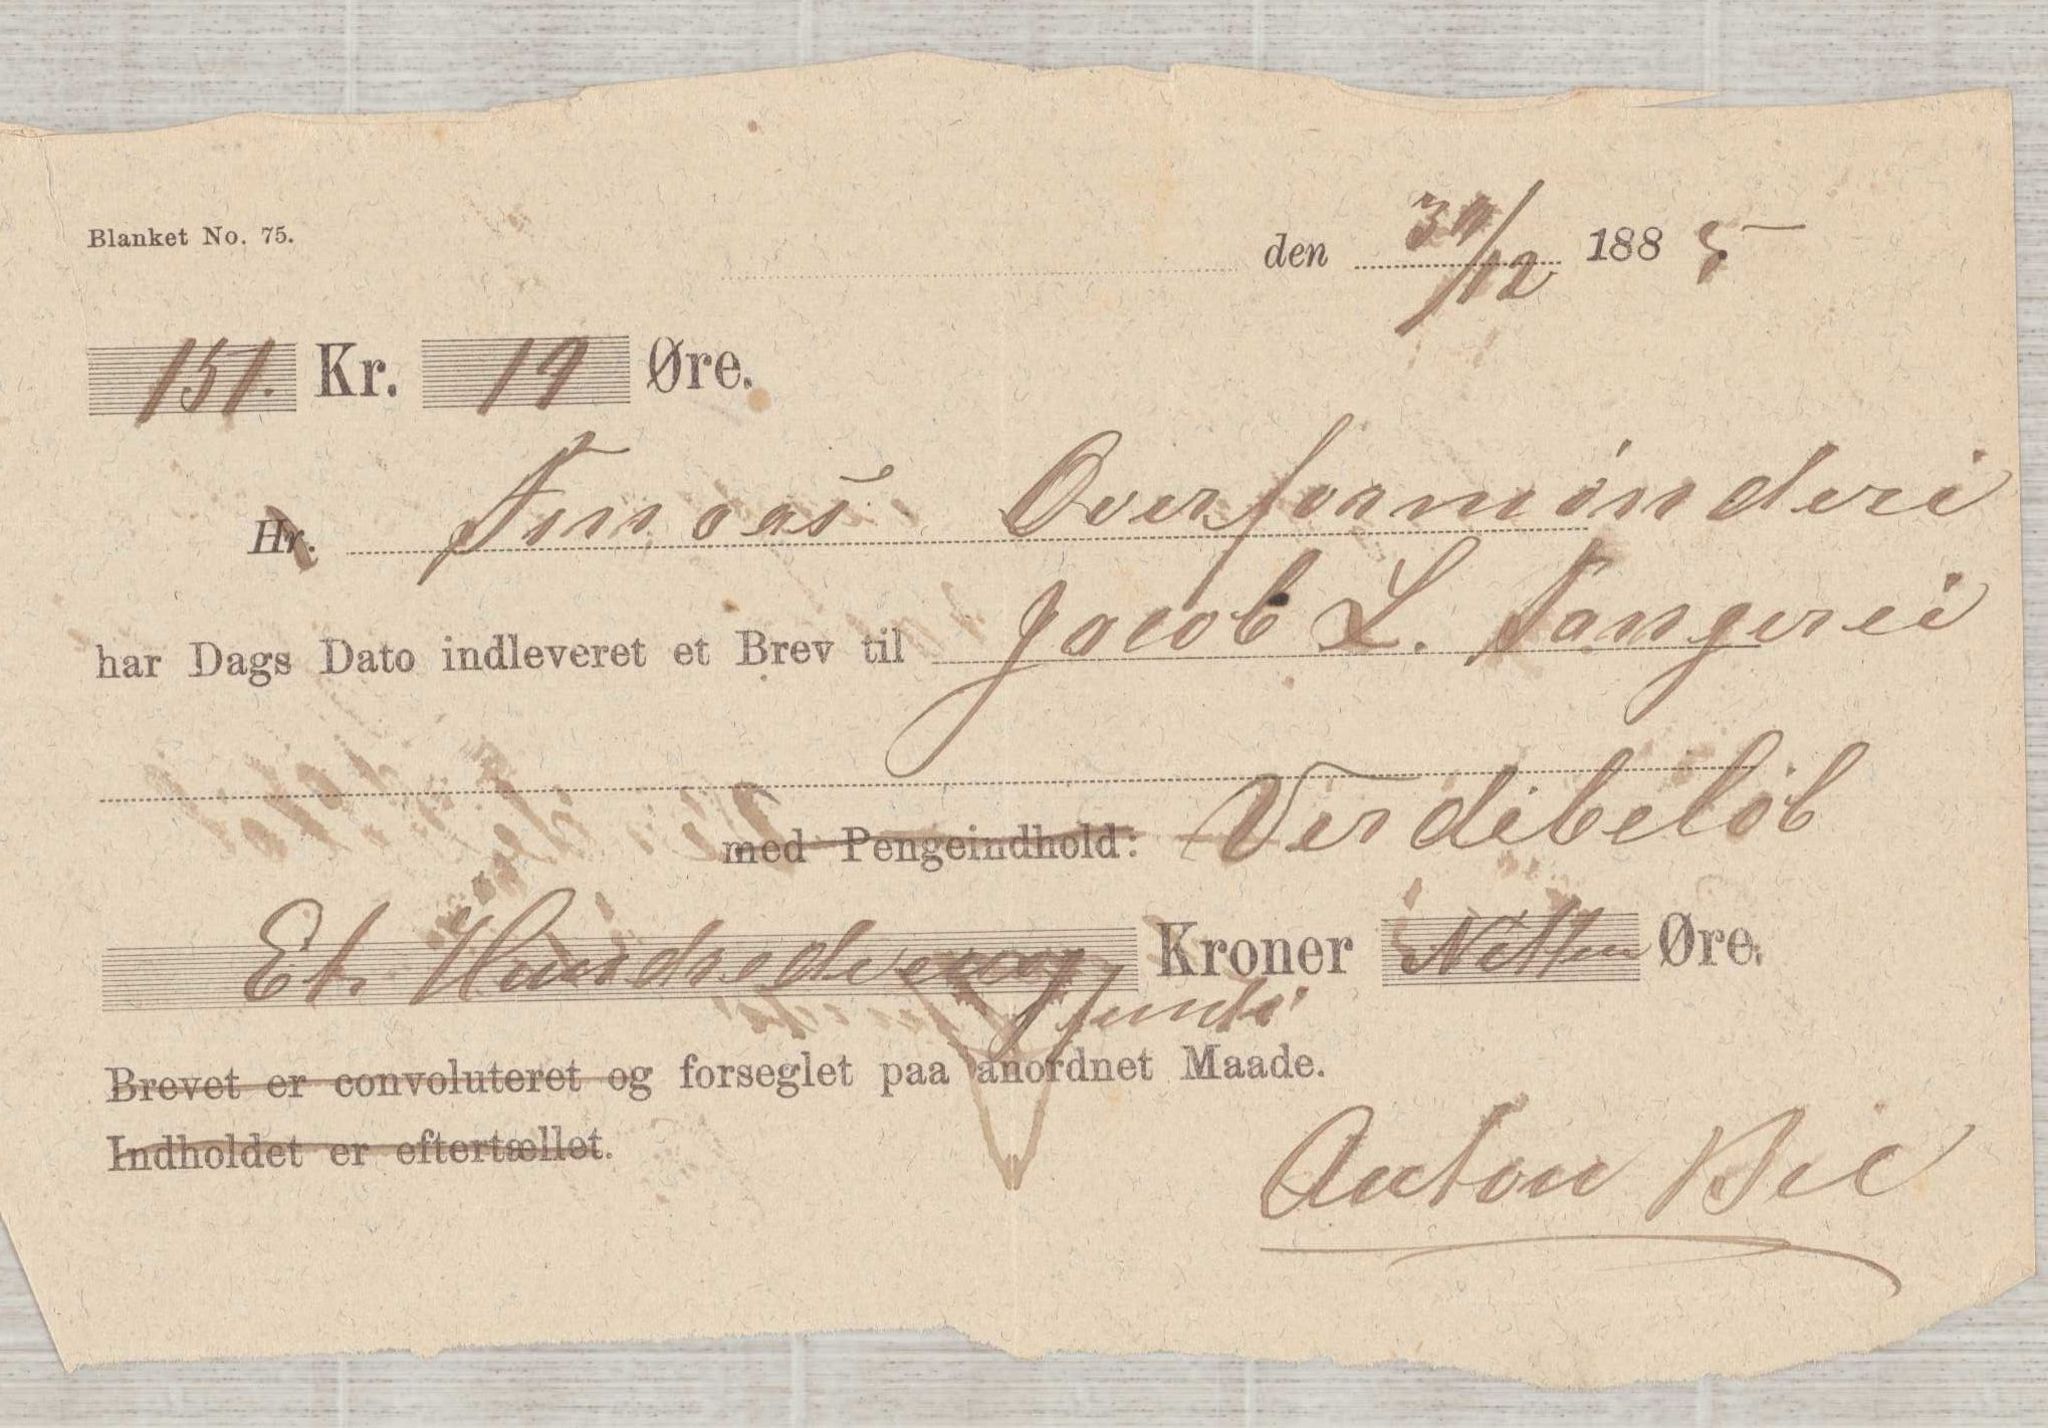 Blanket No. 75.
den 30/12 1885
151. Kr. 19 Øre.
Hr. Finaas Overformünderi
har Dags Dato indleveret et Brev til Jacob L. Tangerei
med Pengeindhold: Verdibeløb
Et Hundrede Kroner Nitten Øre.
Brevet er convoluteret og forseglet paa anordnet Maade.
Indholdet er eftertællet.
Anton Bie